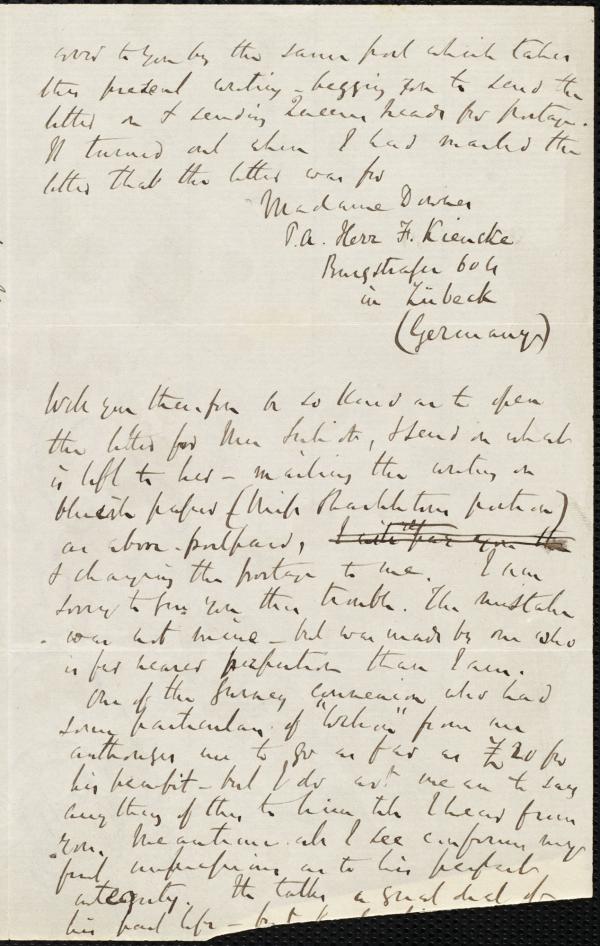 word to you by the same post which takes
this present writing - begging you to send the
letter on & sending Queens heads for postage.
It turned out when I had mailed the
letter that the letter was for
Madame Downes
P.a. Herr F. Kiencke
Burgstrafse 604
in Lübeck
(Germany)
Will you therefore be so kind as to open
the letter for Mrs, & send on what
is left to her - mailing the writing on
blueish paper (Miss portion)
as above - postpaid,
& charging the postage to me. I am
sorry to give you this trouble. The mistake
was not mine - but was made by one who
is far nearer perfection than I am.
One of the Gurney connexion who had
some particulars of "Wilson" from me
authorizes me to go as far as £20 for
his benefit - but I do not mean to say
anything of this to him till I hear from
you. Meantime all I see confirms my
first impressions as to his perfect
integrity. He talks a great deal of
his past life - but